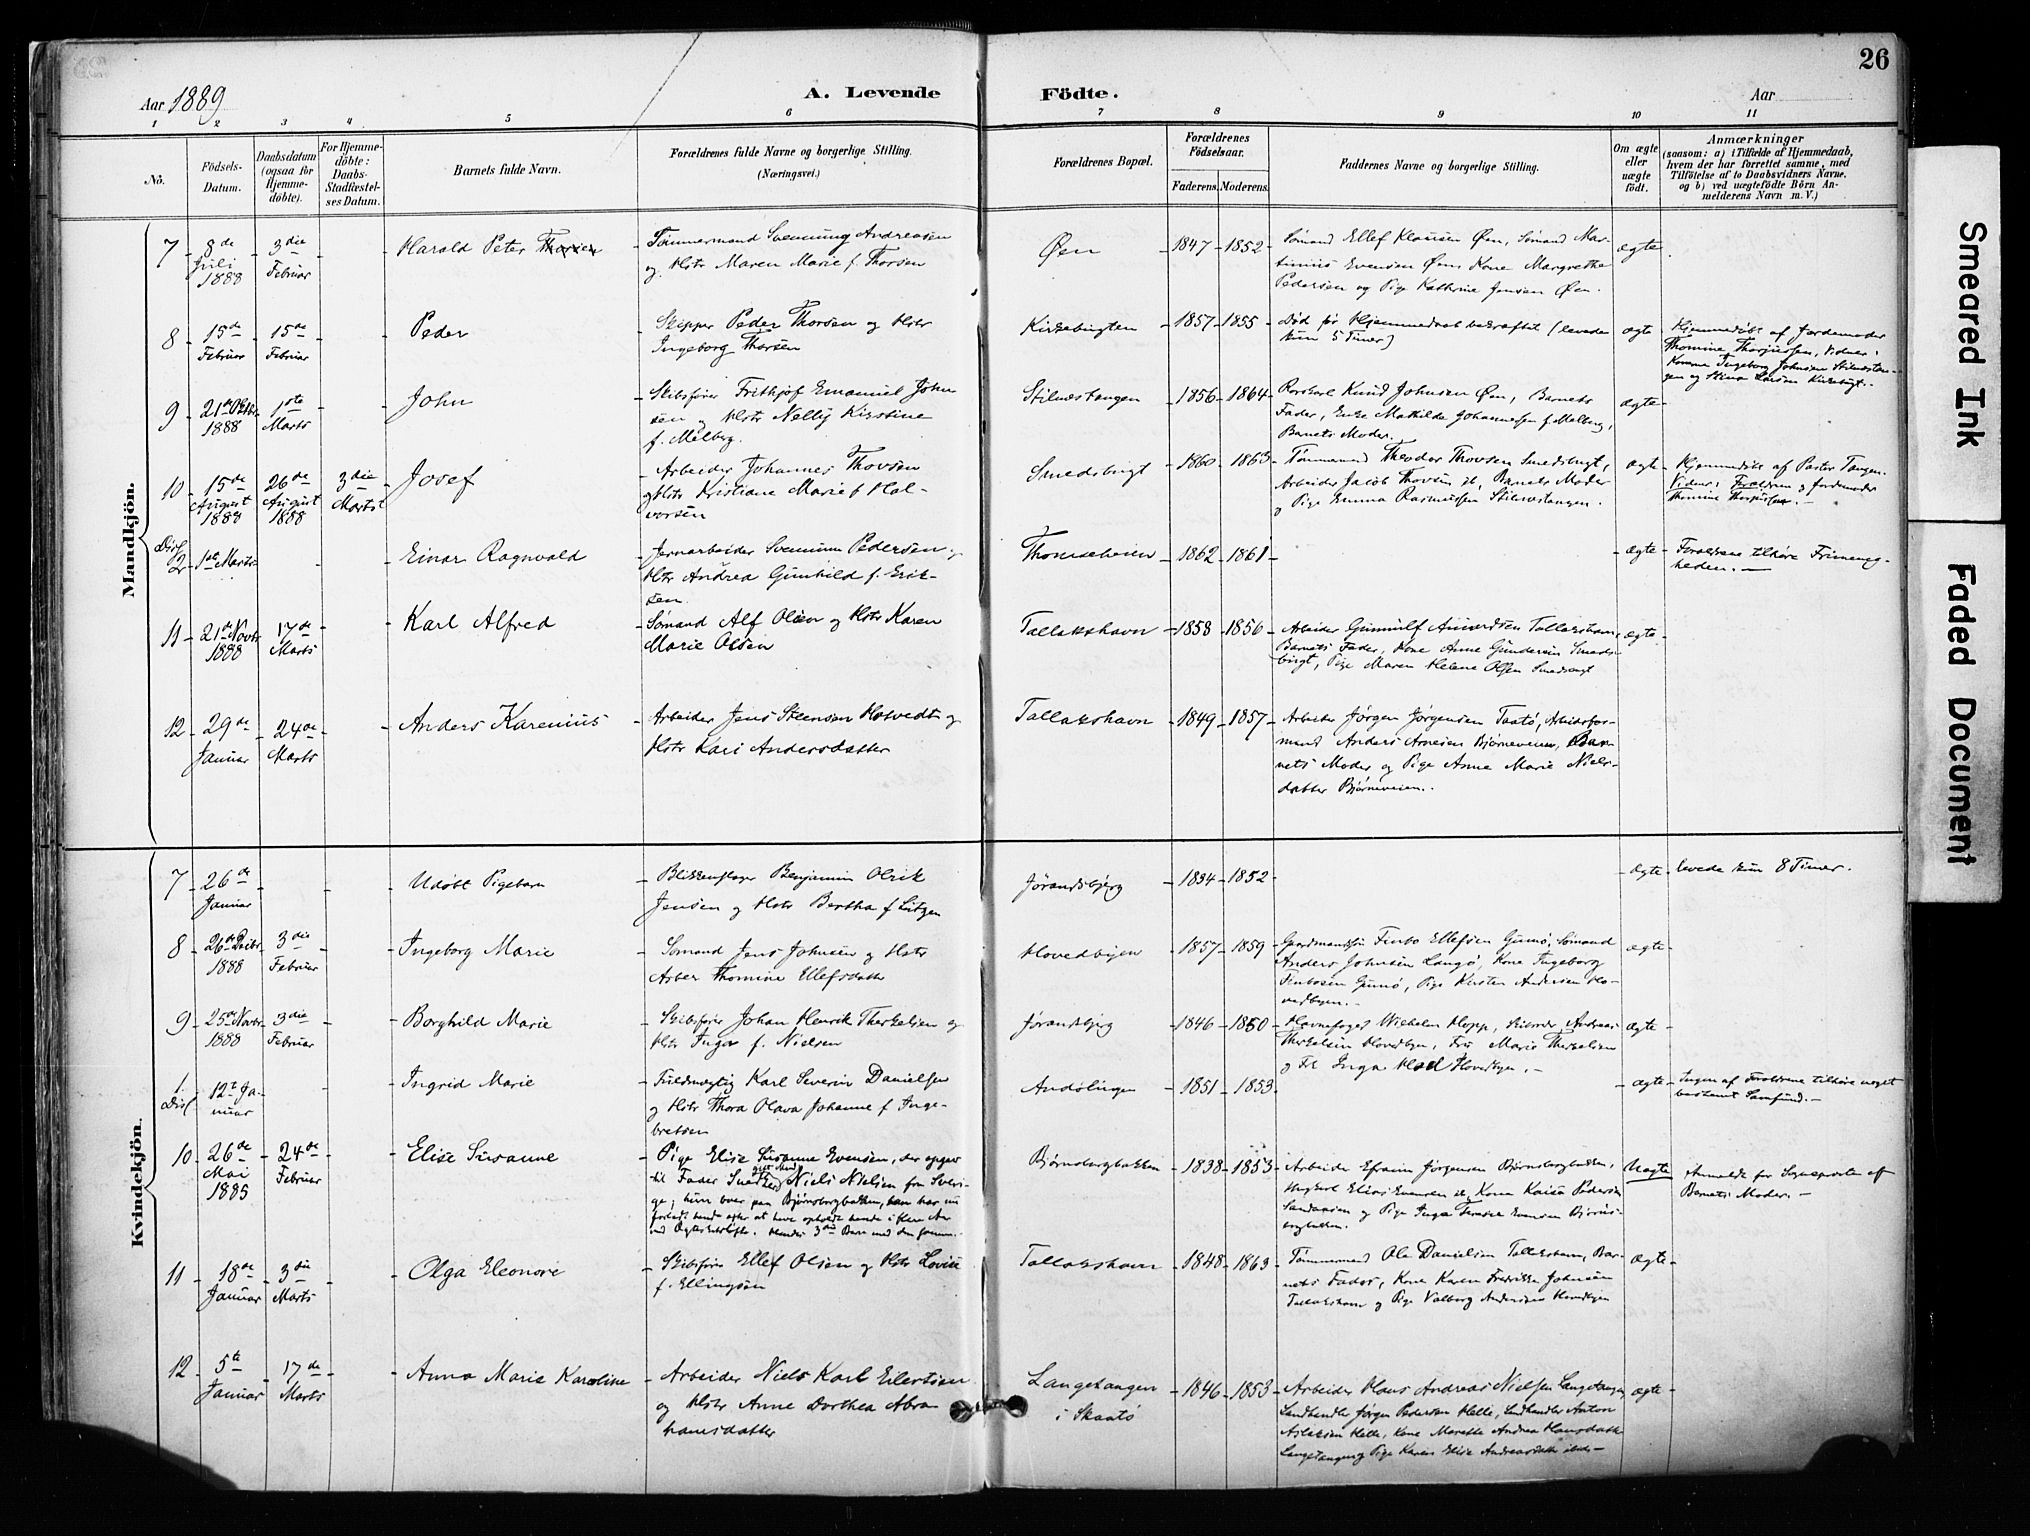 26
Aar 1889
A. Levende Födte.
Aar
1 2 3 4 5 6 7 8 9 10 11
No.
Födsels-Datum.
Daabsdatum (ogsaa for Hjemme-döbte).
For Hjemme-döbte: Daabs-Stadfæstel-ses Datum.
Barnets fulde Navn.
Forældrenes fulde Navne og borgerlige Stilling.
(Næringsvei.)
Forældrenes Bopæl.
Forældrenes Födselsaar.
Faderens. Moderens.
Faddernes Navne og borgerlige Stilling.
Om ægte eller uægte födt.
Anmærkninger
(saasom: a) i Tilfælde af Hjemmedaab, hvem der har forrettet samme, med Tilföielse af to Daabsvidners Navne. og b) ved uægtefödte Börn An-melderens Navn m. V.)
Mandkjön.
7 8de Juli 1888 3die Februar Harald Peter Thorsen
Tømmermand Svenning Andreasen
og Hstr Maren Marie f. Thorsen
Øen 1847 1852
Sømand Ellef Klausen Øen, Sømand Mar-
tinius Evensen Øen, Kone Margrethe
Pedersen og Pige Kathrine Jensen Øen.
ægte
8 15de Februar 15de Februar Peder
Skipper Peder Thorsen og Hstr
Ingeborg Thorsen
Kirkebugten 1857 1855
Død før Hjemmedaab bekræftet (levede
kun 5 Timer)
ægte
Hjemmedøbt af Jordemoder
Thomine Thorjussen, Vidner:
Kone Ingeborg Johnsen Stilnestan-
gen og Stina Larsen Kirkebugt.
9 21de Oktbr 1888 1ste Marts John
Skibsfører Frithjof Emanuel John
sen og Hstr Nelly Kirstine
f. Melberg.
Stilnestangen 1856 1864
Knud Johnsen Øen, Barnets
Fader, Enke Mathilde Johannessen f. Melberg,
Barnets Moder.
ægte
10 15de August 1888 26de August 1888 3die Marts Josef
Arbeider Johannes Thovsen
og Hstr Kristiane Marie f. Hal-
vorsen
Smedsbugt 1860 1863
Tømmermd Theodor Thovsen Smedsbugt,
Arbeider Jacob Thovsen st, Barnets Moder
og Pige Emma Rasmussen Stilnestangen.
ægte
Hjemmedøbt af Pastor Tangen.
Vidner: Forældrene og Jordemoder
Thomine Thorjussen.
Diss 2 1ste Marts Einar Ragnvald
Jernarbeider Svennum Pedersen og
Hstr Andrea Gunhild f. Erik-
sen
Thomesheien 1862 1861
ægte
Forældrene tilhøre Frimenig-
heden.
11 21de Novbr 1888 17de Marts Karl Alfred
Sømand Alf Olsen og Hstr Karen
Marie Olsen
Tallakshavn 1858 1856
Arbeider Gunnulf Tallakshavn,
Barnets Fader, Kone Anne Gundersen Smeds-
bugt, Pige Maren Helene Olsen Smedsbugt
ægte
12 29de Januar 24de Marts Anders Karenius
Arbeider Jens Steensen Hotvedt og
Hstr Kari Andersdatter
Tallakshavn 1849 1857
Arbeider Jørgen Jørgensen Taatø, Arbeidsfor-
mand Anders Arnesen Bjørneveien, Bar-
nets Moder og Pige Anne Marie Niels-
datter Bjørneveien.
Kvindekjön.
7 26de Januar Udøbt Pigebarn
Blikkenslager Benjamin Olrik
Jensen og Hstr Bertha f. Lützen
Jørandsbjerg 1834 1852
ægte
levede kun 8 Timer.
8 26de Decbr 1888 3die Februar Ingeborg Marie
Sømand Jens Johnsen og Hstr
Thomine Ellefsdatter
Hovedbyen 1857 1859
Gaardmandssøn Finbo Ellefsen Gumø, Sømand
Anders Johnsen Langø, Kone Ingeborg
Finbosen Gumø, Pige Kirsten Andersen Ho-
vedbyen.
ægte
9 25de Novbr 1888 3die Februar Borghild Marie
Skibsfører Johan Henrik Therkelsen og
Hstr Inga f. Nielsen
Jørandsbjerg 1846 1850
Havnefoged Wilhelm Hopp, Andreas
Therkelsen Hovedbyen, Fru Marie Therkelsen
og Frk Inga Hovedbyen.
ægte
1 Diss 12te Januar Ingrid Marie
Fuldmægtig Karl Severin Danielsen
og Hstr Thora Olava Johanne f. Inge-
bretsen
Andølingen 1851 1853
ægte
Ingen af Forældrene tilhøre noget
bestemt Samfund.
10 26de Mai 1885 24de Februar Elise Susanne
Pige Elise Susanne Evensen, der opgav
til Fader Niels Nielsen fra Sveri-
ge; hun bor paa Bjørnsborgbakken, han har nu
forladt hende efter at have opholdt hende i flere Aar
ved Ægteskabsløfte. Hendes 3die Barn med den samme.
Bjørnsborgbakken 1838 1853
Arbeider Efraim Jørgensen Bjørnsborgbakken,
Ungkarl Elias Evensen st, Kone Kaisa Pedersen
og Pige Inga Evensen Bjørns-
borgbakken.
Uægte
Anmeldt for Sognepresten af
Barnets Moder.
11 18de Januar 3die Marts Olga Eleonore
Skibsfører Ellef Olsen og Hstr Lovise
f. Ellingsen
Tallakshavn 1848 1863
Tømmermd Ole Danielsen Tallakshavn, Bar-
nets Fader, Kone Karen Fredrikke Johnsen
Tallakshavn og Pige Valborg Andersen Hovedbyen
ægte
12 5te Januar 17de Marts Anna Marie Karoline
Arbeider Niels Karl Eilertsen
og Hstr Anne Dorthea Abra
hamsdatter
Langetangen
i Skaatø
1846 1853
Arbeider Hans Andreas Nielsen Langetangen
Landhandler Jørgen Pedersen Helle, Landhandler Anton
Aslaksen Helle, Kone Merethe Andrea Hansdatter
Langetangen og Pige Karen Elise Andreasdatter ibds
ægte
Smeared Ink
Faded Document